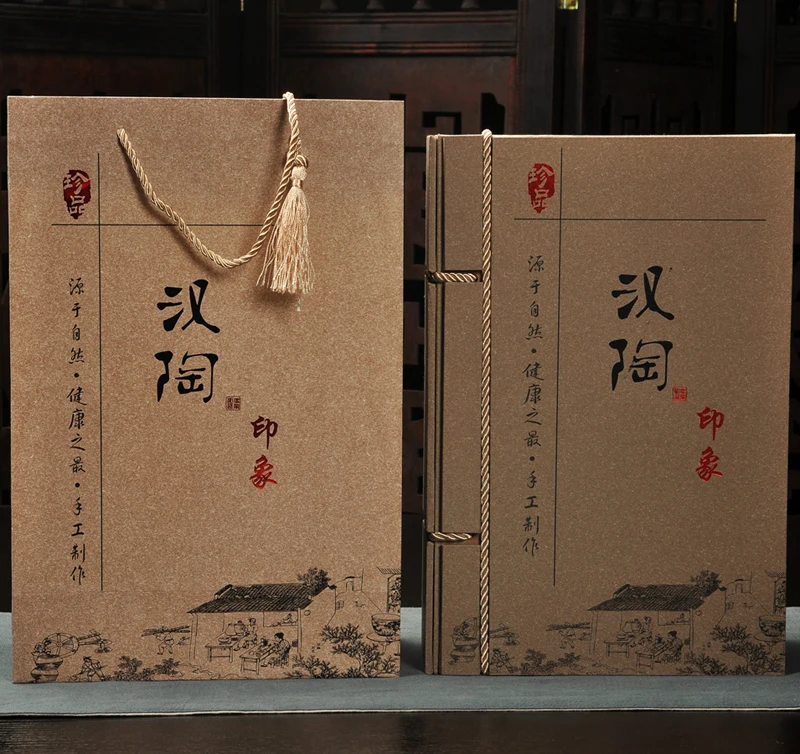 珍品
源于自然·健康之最·手工制作
汉陶
印象
珍品
源于自然·健康之最·手工制作
汉陶
印象